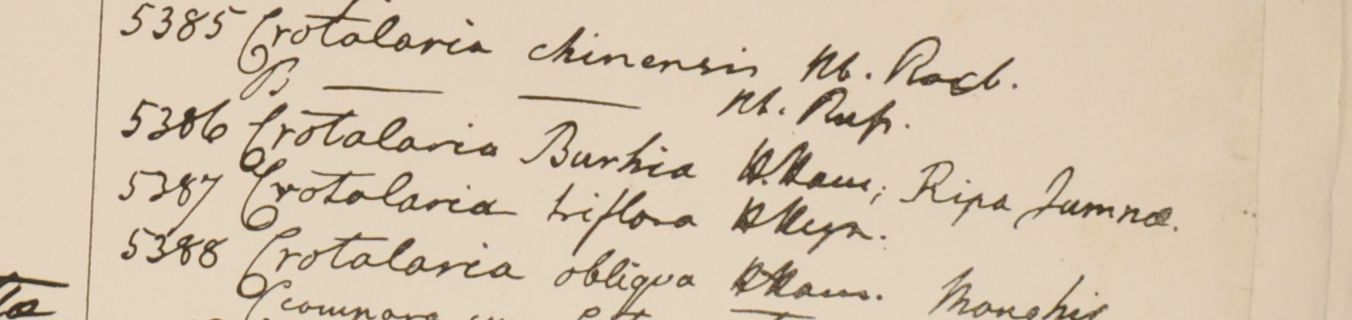 5385 Crotalaria chinensis Hb. Roxb.
B — — Hb. Rup.
5386 Crotalaria Burhia H.Ham; Ripa Jumnæ.
5387 Crotalaria triflora HHeyn.
5388 Crotalaria obliqua HHam. Monghir